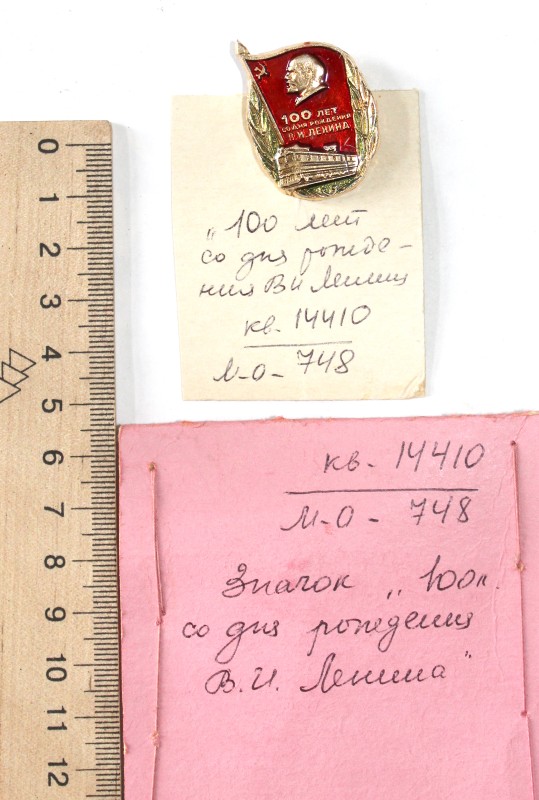 100 ЛЕТ
СО ДНЯ РОЖДЕНИЯ
В. И. ЛЕНИНА
„100 лет
со дня рожде-
ния ВИ Ленина
кв. 14410
М-О- 748
кв. 14410
М-О- 748
Значок „100л.
со дня рождения
В.И. Ленина"
0
1
2
3
4
5
6
7
8
9
10
11
12